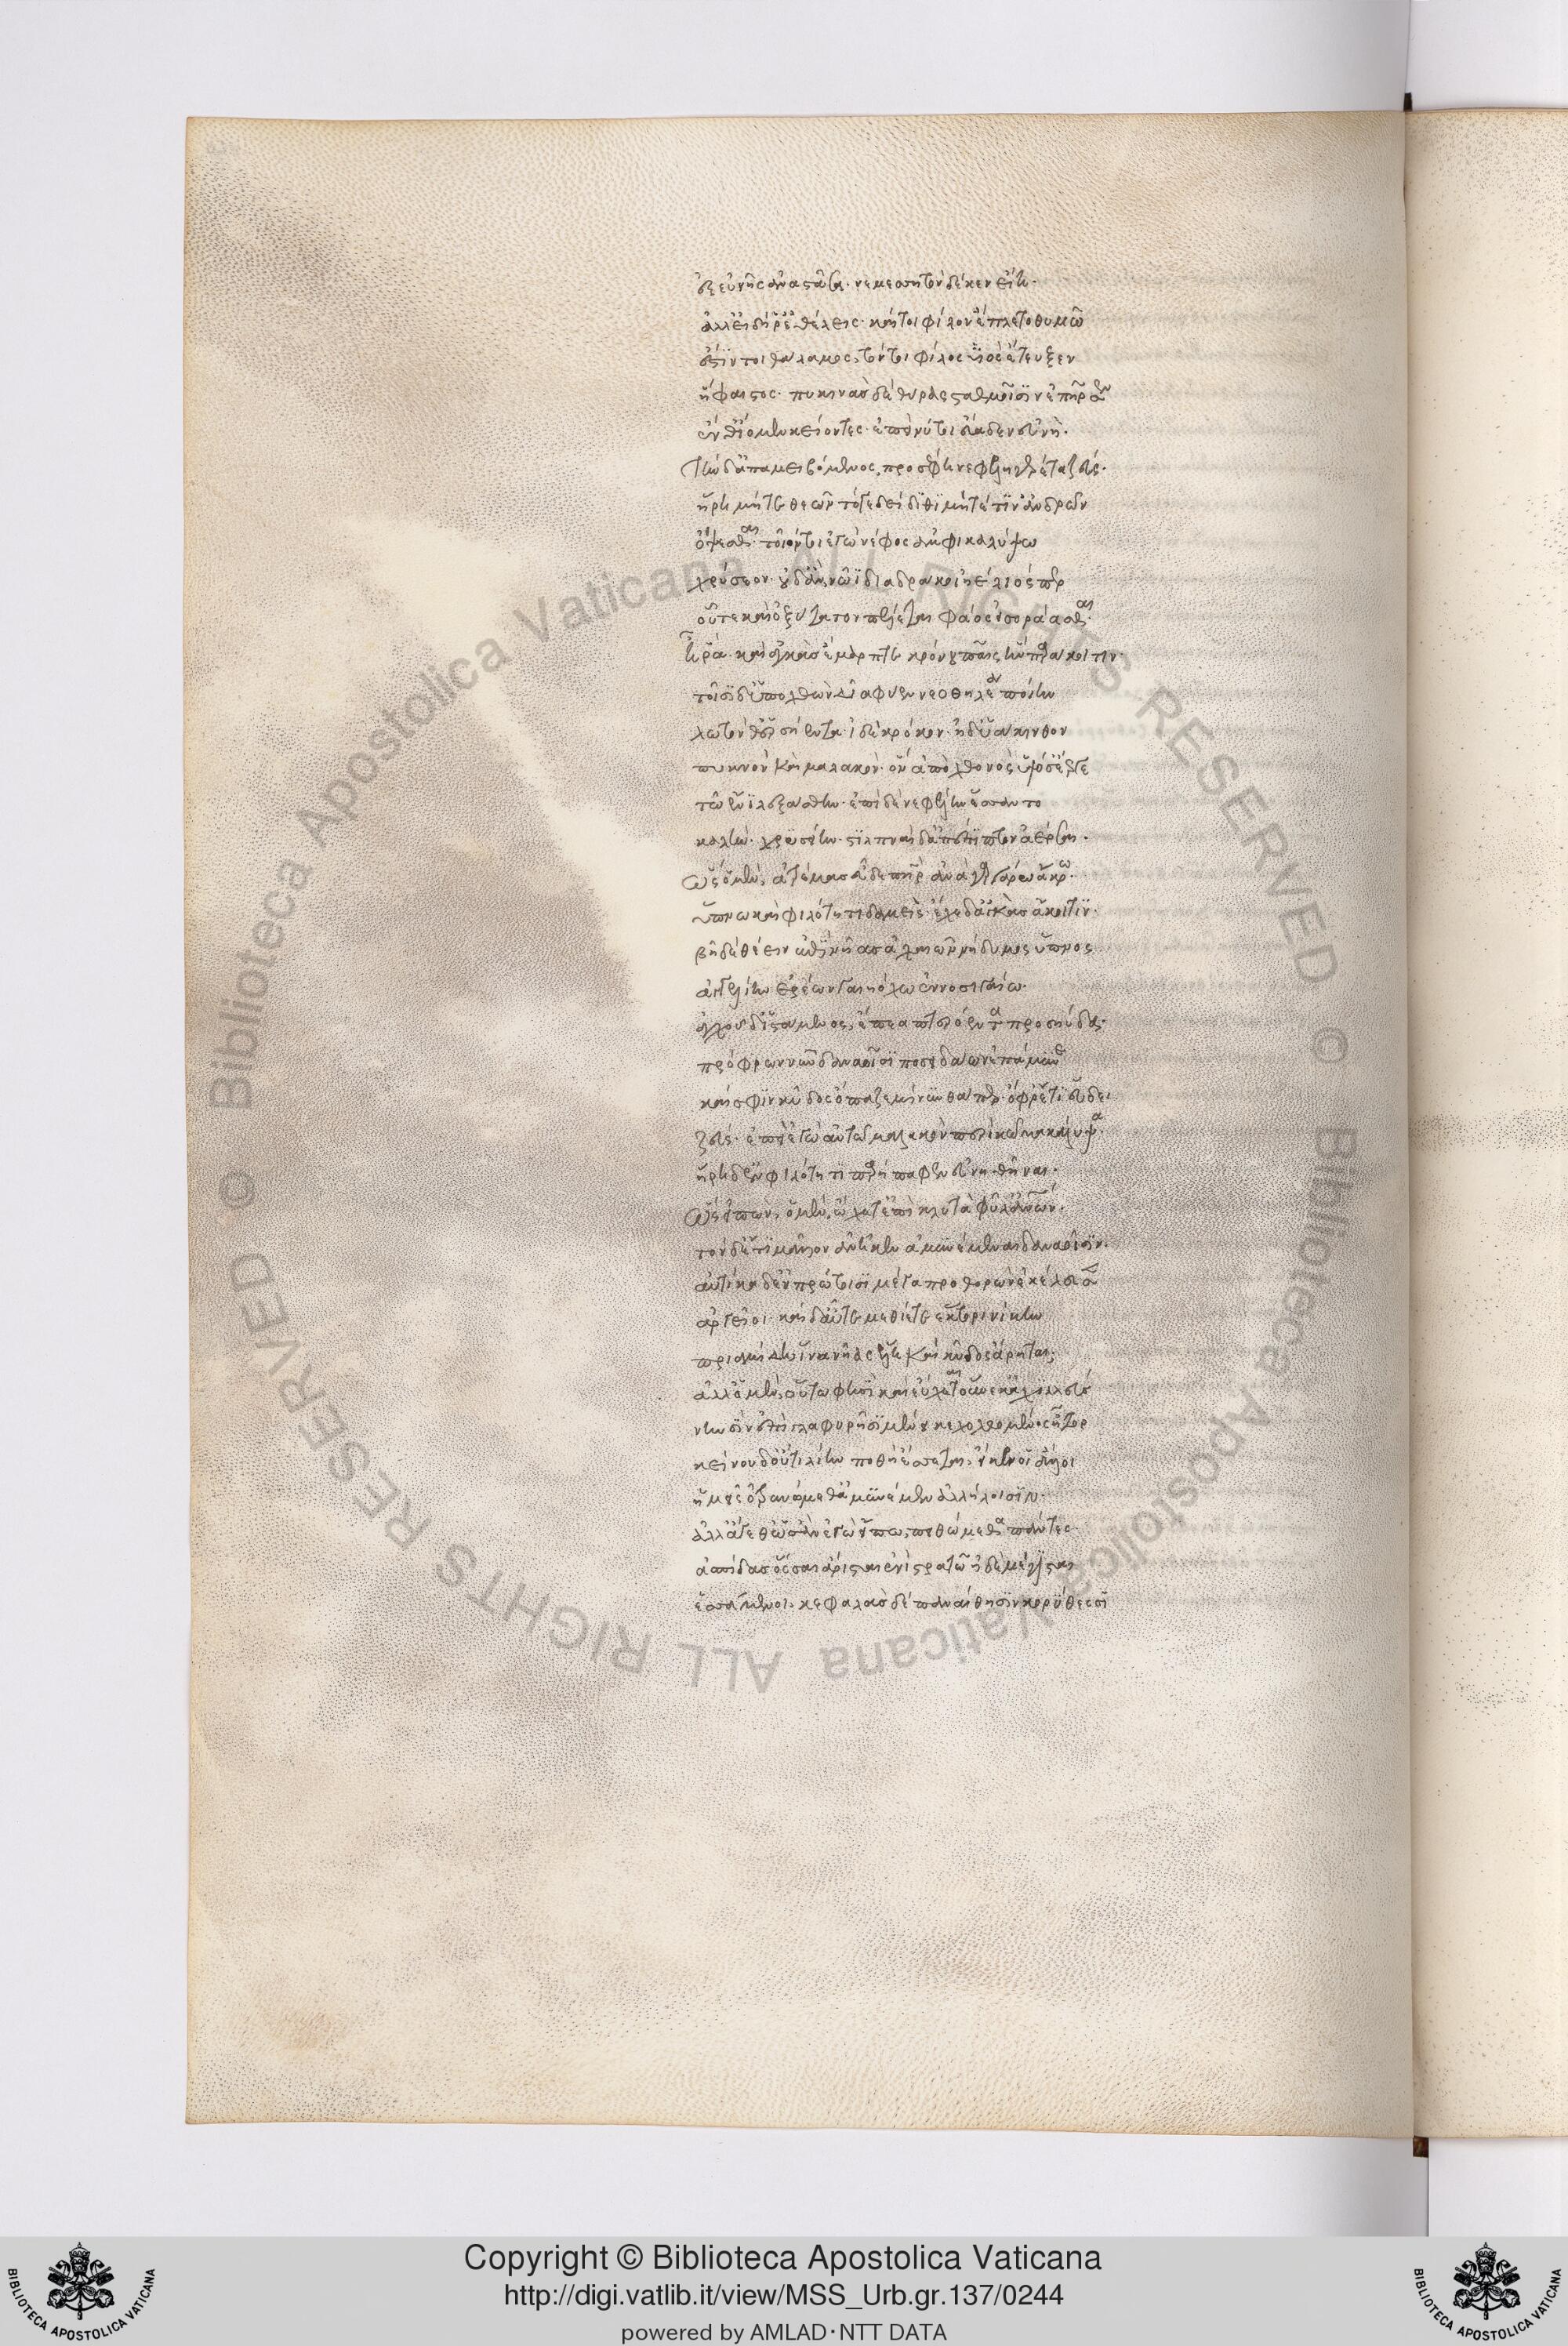 ἐξ εὐνῆς ἀνστᾶσα· νεμεσητὸν δέ κεν εἴη·
ἀλλ' εἰ δή ῥ' ἐθέλεις· καί τοι φίλον ἔπλετο θυμῷ
ἔστίν τοι θάλαμος, τόν τοι φίλος υἱὸς ἔτευξεν
ἥφαιστος· πυκινὰς δὲ θύρας σταθμοῖσιν ἐπῆρσεν
ἔνθ' ἴομεν κείοντες· ἐπεί νύ τοι εὔαδεν εὐνή·
Τὴν δ' ἀπαμειβόμενος, προσέφη νεφεληγερέτα ζεύς·
ἥρη μήτε θεῶν τόγε δείδιθι μήτέ τιν' ἀνδρῶν
ὄψεσθαι· τοῖόν τοι ἐγὼ νέφος ἀμφικαλύψω
χρύσεον· οὐδ' ἂν νῶϊ διαδράκοι ἠέλιός περ
οὗτε καὶ ὀξύτατον πέλεται φάος εἰσοράασθαι·
Ἦ ῥα· καὶ ἀγκὰς ἔμαρπτε κρόνου παῖς ἣν παράκοιτιν·
τοῖσι δ' ὑπὸ χθὼν δῖα φύεν νεοθηλέα ποίην
λωτόν θ' ἑρσήεντα· ἰδὲ κρόκον· ἠδ' ὑάκινθον
πυκνὸν καὶ μαλακὸν· ὃς ἀπὸ χθονὸς ὑψόσ' ἔεργε
τῷ ἔνι λεξάσθην· ἐπὶ δὲ νεφέλην ἕσαντο
καλὴν· χρυσείην· στιλπναὶ δ' ἀπέπιπτον ἔερσαι·
Ὣς ὁ μὲν, ἀτρέμας εὗδε πατὴρ ἀνὰ γαργάρω ἄκρω·
ὕπνω καὶ φιλότητι δαμεὶς· ἔχε δ' ἀγκὰς ἄκοιτιν·
βῆ δὲ θέειν ἐπὶ νῆας ἀχαιῶν νήδυμος ὕπνος
ἀγγελίην ἐρέων γαιηόχω ἐννοσιγαίω·
ἀγχοῦ δ' ἱστάμενος, ἔπεα πτερόεντα προσηύδα·
πρόφρων νῦν δαναοῖσι ποσείδαων ἐπάμυνε
καί σφιν κῦδος ὄπαζε μίνυνθά περ· ὄφρ' ἔτι εὕδει
ζεύς· ἐπεὶ αὐτῷ ἐγὼ μαλακὸν περὶ κῶμα κάλυψα·
ἥρη δ' ἐν φιλότητι παρήπαφεν εὐνηθῆναι·
Ὣς εἰπὼν, ὁ μὲν, ὤχετ' ἐπὶ κλυτὰ φῦλ' ἀνθρώπων·
τὸν δ' ἔτι μᾶλλον ἀνῆκεν ἀμυνέμεναι δαναοῖσιν·
αὐτίκα δ' ἐν πρώτοισι μέγα προθορὼν ἐκέλευσεν
ἀργεῖοι· καὶ δ' αὖτε μεθίετε ἕκτορι νίκην
πριαμίδη ἵνα νῆας ἕλη καὶ κῦδος ἄρηται;
ἀλλ' ὁ μὲν, οὕτω φησὶ καὶ εὔχεται οὕνεκ' ἀχιλλεύς
νηυσὶν ἐπὶ γλαφυρῇσι μένει κεχολωμένος ἦτορ
κείνου δ' οὔτι λίην ποθὴ ἔσσεται, εἴ κεν οἱ ἄλλοι
ἡμεῖς ὀτρυνώμεθ' ἀμυνέμεν ἀλλήλοισιν·
ἀλλ' ἄγεθ' ὡς ἂν ἐγὼν εἴπω, πειθώμεθα πάντες·
ἀσπίδας ὅσσαι ἄρισται ἐνὶ στρατῷ ἠδὲ μέγισται
ἑσσάμενοι, κεφαλὰς δὲ παναίθησιν κορύθεσσι
Copyright © Biblioteca Apostolica Vaticana
http://digi.vatlib.it/view/MSS_Urb.gr.137/0244
powered by AMLAD·NTT DATA